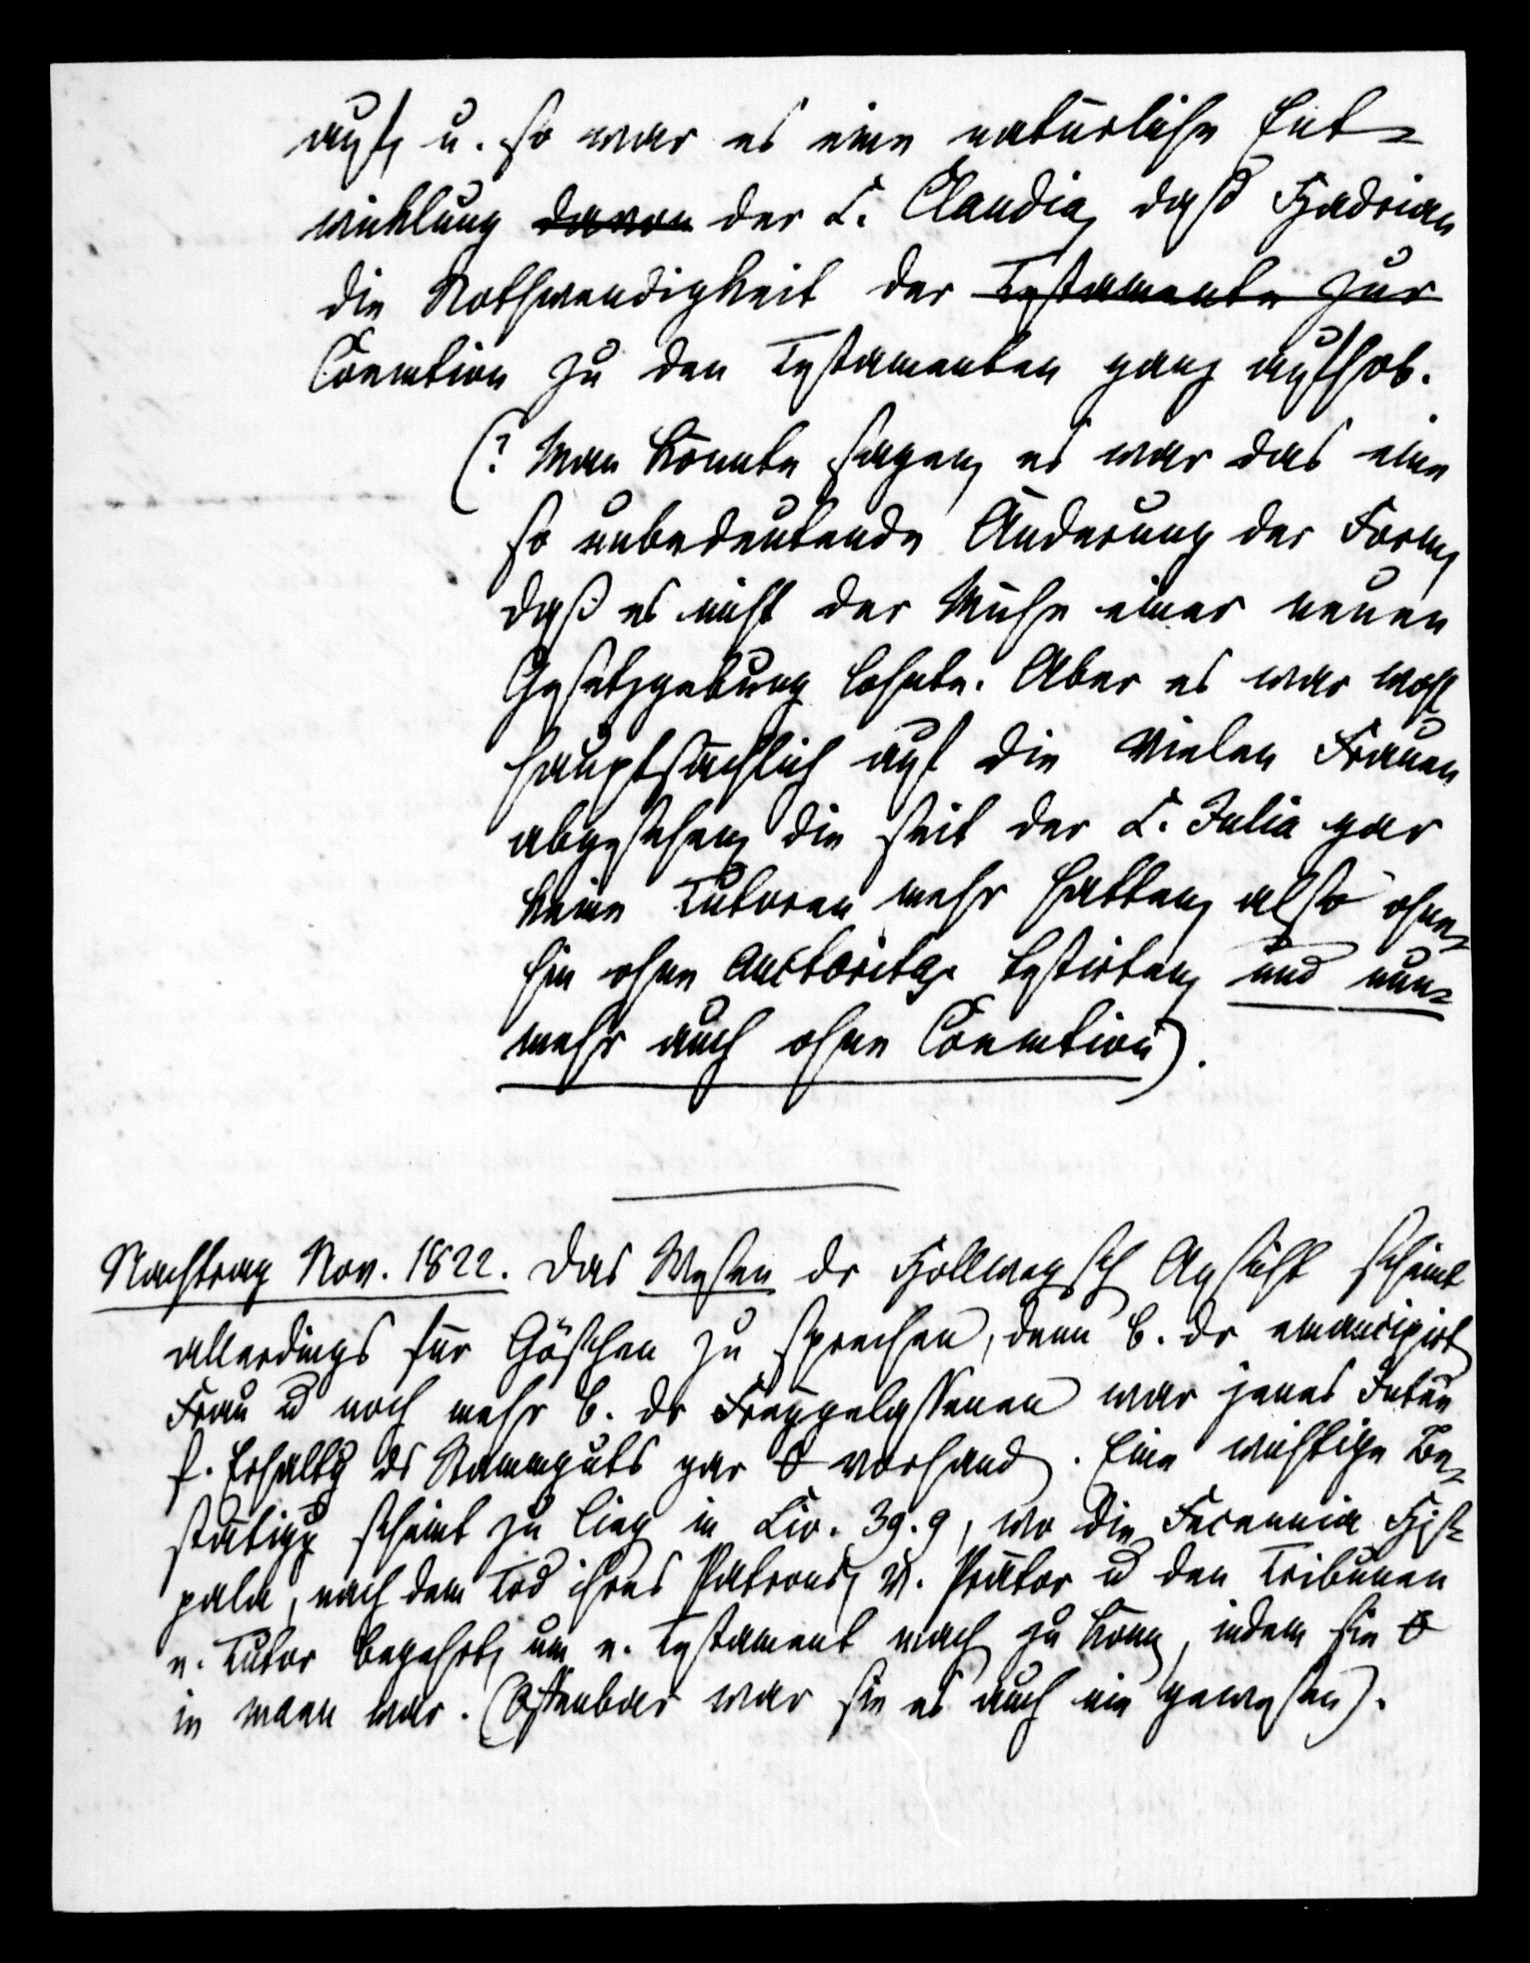 auf, u. so war es eine natürliche Ent-
wicklung davon der L. Claudia, daß Hadrian
die Nothwendigkeit der Testamente zur
Coemtion zu den Testamenten ganz aufhob.
(? Man könnte sagen, es war das eine
so unbedeutende Änderung der Form,
daß es nicht der Mühe einer neuen
Gesetzgebung lohnte. Aber es war wohl
hauptsächlich auf die vielen Frauen
abgesehen, die seit der L. Julia gar
keine Tutoren mehr hatten, also ohne-
hin ohne Auctoritas testirten, und nun-
mehr auch ohne Coemtion).
Nachtrag Nov. 1822. Das Wesen dr Hollwegsch Ansicht scheint
allerdings für Göschen zu sprechen, denn b. dr emancipirt
Frau u noch mehr b. dr Freygelassenen war jenes
f. Erhaltg ds Stammguts gar 0 vorhand. Eine wichtige Be-
stätigg scheint zu lieg in Liv. 39.9, wo die Fecennia His-
pala, nach dem Tod ihres Patrons, v. Prätor u den Tribunen
e. Tutor begehrt, um e. Testament mach zu könn, indem sie 0
in manu war. (Offenbar war sie es auch nie gewesen).